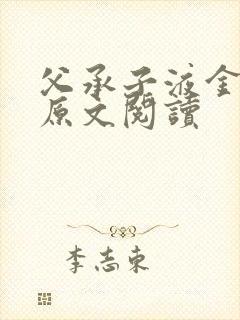 父承子液金
原文閱讀
李志東